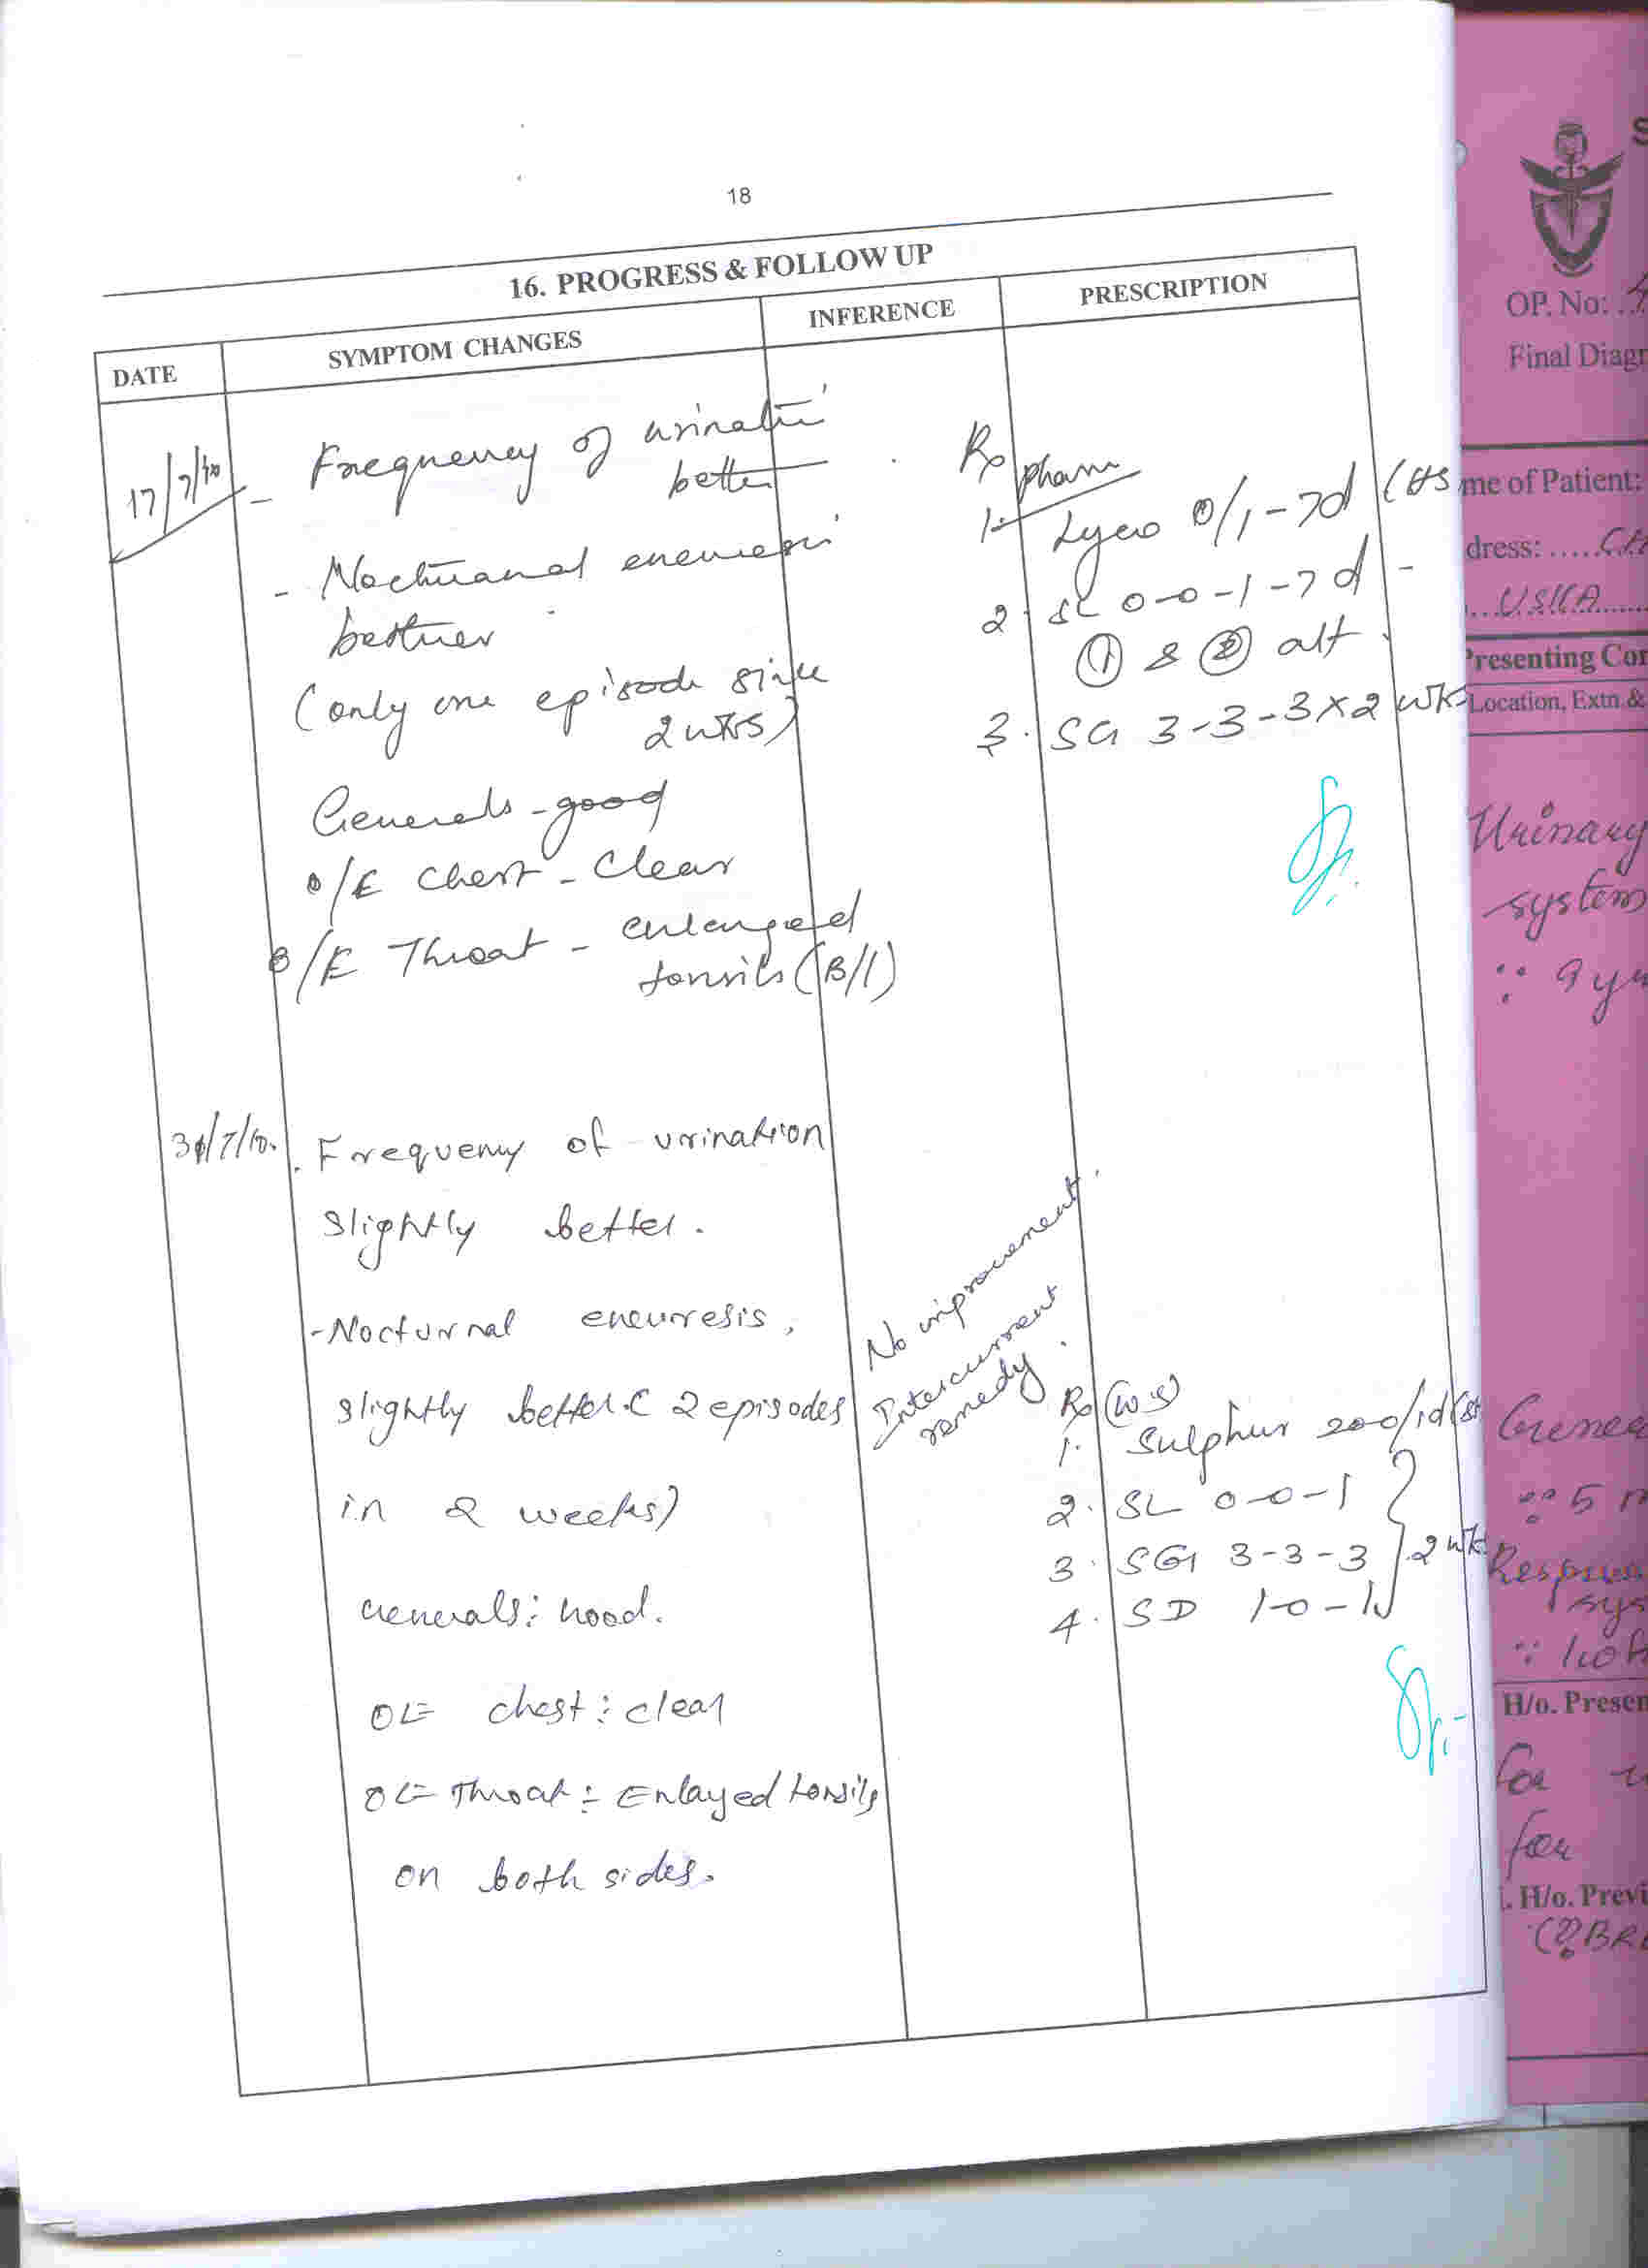 18
16. PROGRESS & FOLLOW UP
DATE
SYMPTOM CHANGES
INFERENCE
PRESCRIPTION
17/7/10
- Frequency of urination
better
- Nocturanal eneuresis
bettner
(only one episode since
2 wks)
Generals - good
O/E Chest - Clear
O/E Throat - enlarged
tonsils (B/l)
Rx pharm
1. Lyco 0/1 - 7d (HS
2. SL 0-0-1-7d -
① & ② alt.
3. SG 3-3-3 x 2 wks
31/7/10.
. Frequency of urination
slightly better.
- Nocturnal eneurresis,
slightly better. C 2 episodes
in 2 weeks)
Generals: Good.
OE chest: clear
OE Throat: Enlayed tonsils
on both sides.
No improvement.
Intercurrent
remedy.
Rx
1. Sulphur 200/1d (st
2. SL 0-0-1
3. SG 3-3-3
2 wk.
4. SD 1-0-1
S
OP. No:
Final Diagn
me of Patient:
dress:
USHA
Presenting Con
Location, Extn &
Urinary
system
9 y
Gene
5 m
H/o. Presen
for
for
i. H/o. Previ